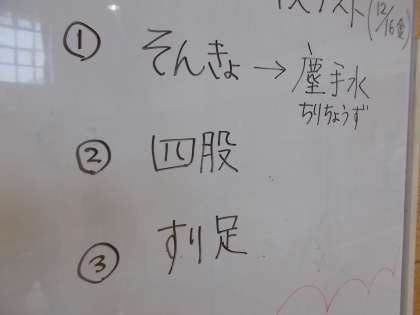 テスト(12/16金)
① そんきょ→塵手水
ちりちょうず
② 四股
③ すり足